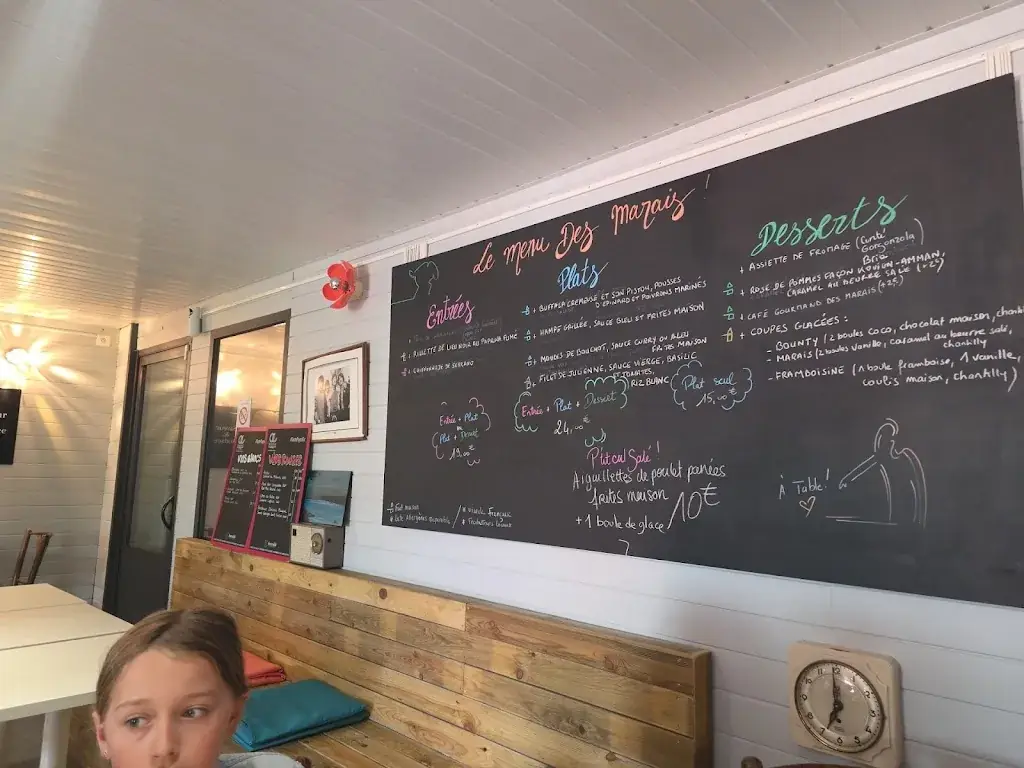 Le Menu Des Marais !
Entrées
+ Rillette de lieu noir au paprika fumé
de Serrano
Entrée + Plat
Plat + Dessert
19,00€
Plats
+ Buffala crémeuse et son piston, pousses
d'épinard et poivrons marinés
+ Hampe grillée, sauce bleu et frites maison
+ Moules de bouchot, sauce curry ou ailli
frites maison
+ Filet de julienne, sauce vierge, basilic
tomates,
riz blanc
Entrée + Plat + Dessert
24,00€
Plat seul
15,00€
P'tit cul Salé !
Aiguillettes de poulet panées
frites maison
+ 1 boule de glace / 10€
Desserts
+ Assiette de fromage (Comté
Gorgonzola)
Brie
+ Rose de pommes façon kouign-amman,
caramel au beurre salé (+2€)
+ Café gourmand des Marais (+2€)
+ Coupes glacées :
- Bounty (2 boules coco, chocolat maison,
- Marais (2 boules vanille, caramel au beurre salé,
chantilly
- Framboisine (1 boule framboise, 1 vanille,
coulis maison, chantilly)
À Table !
* Fait maison
* Viande Française